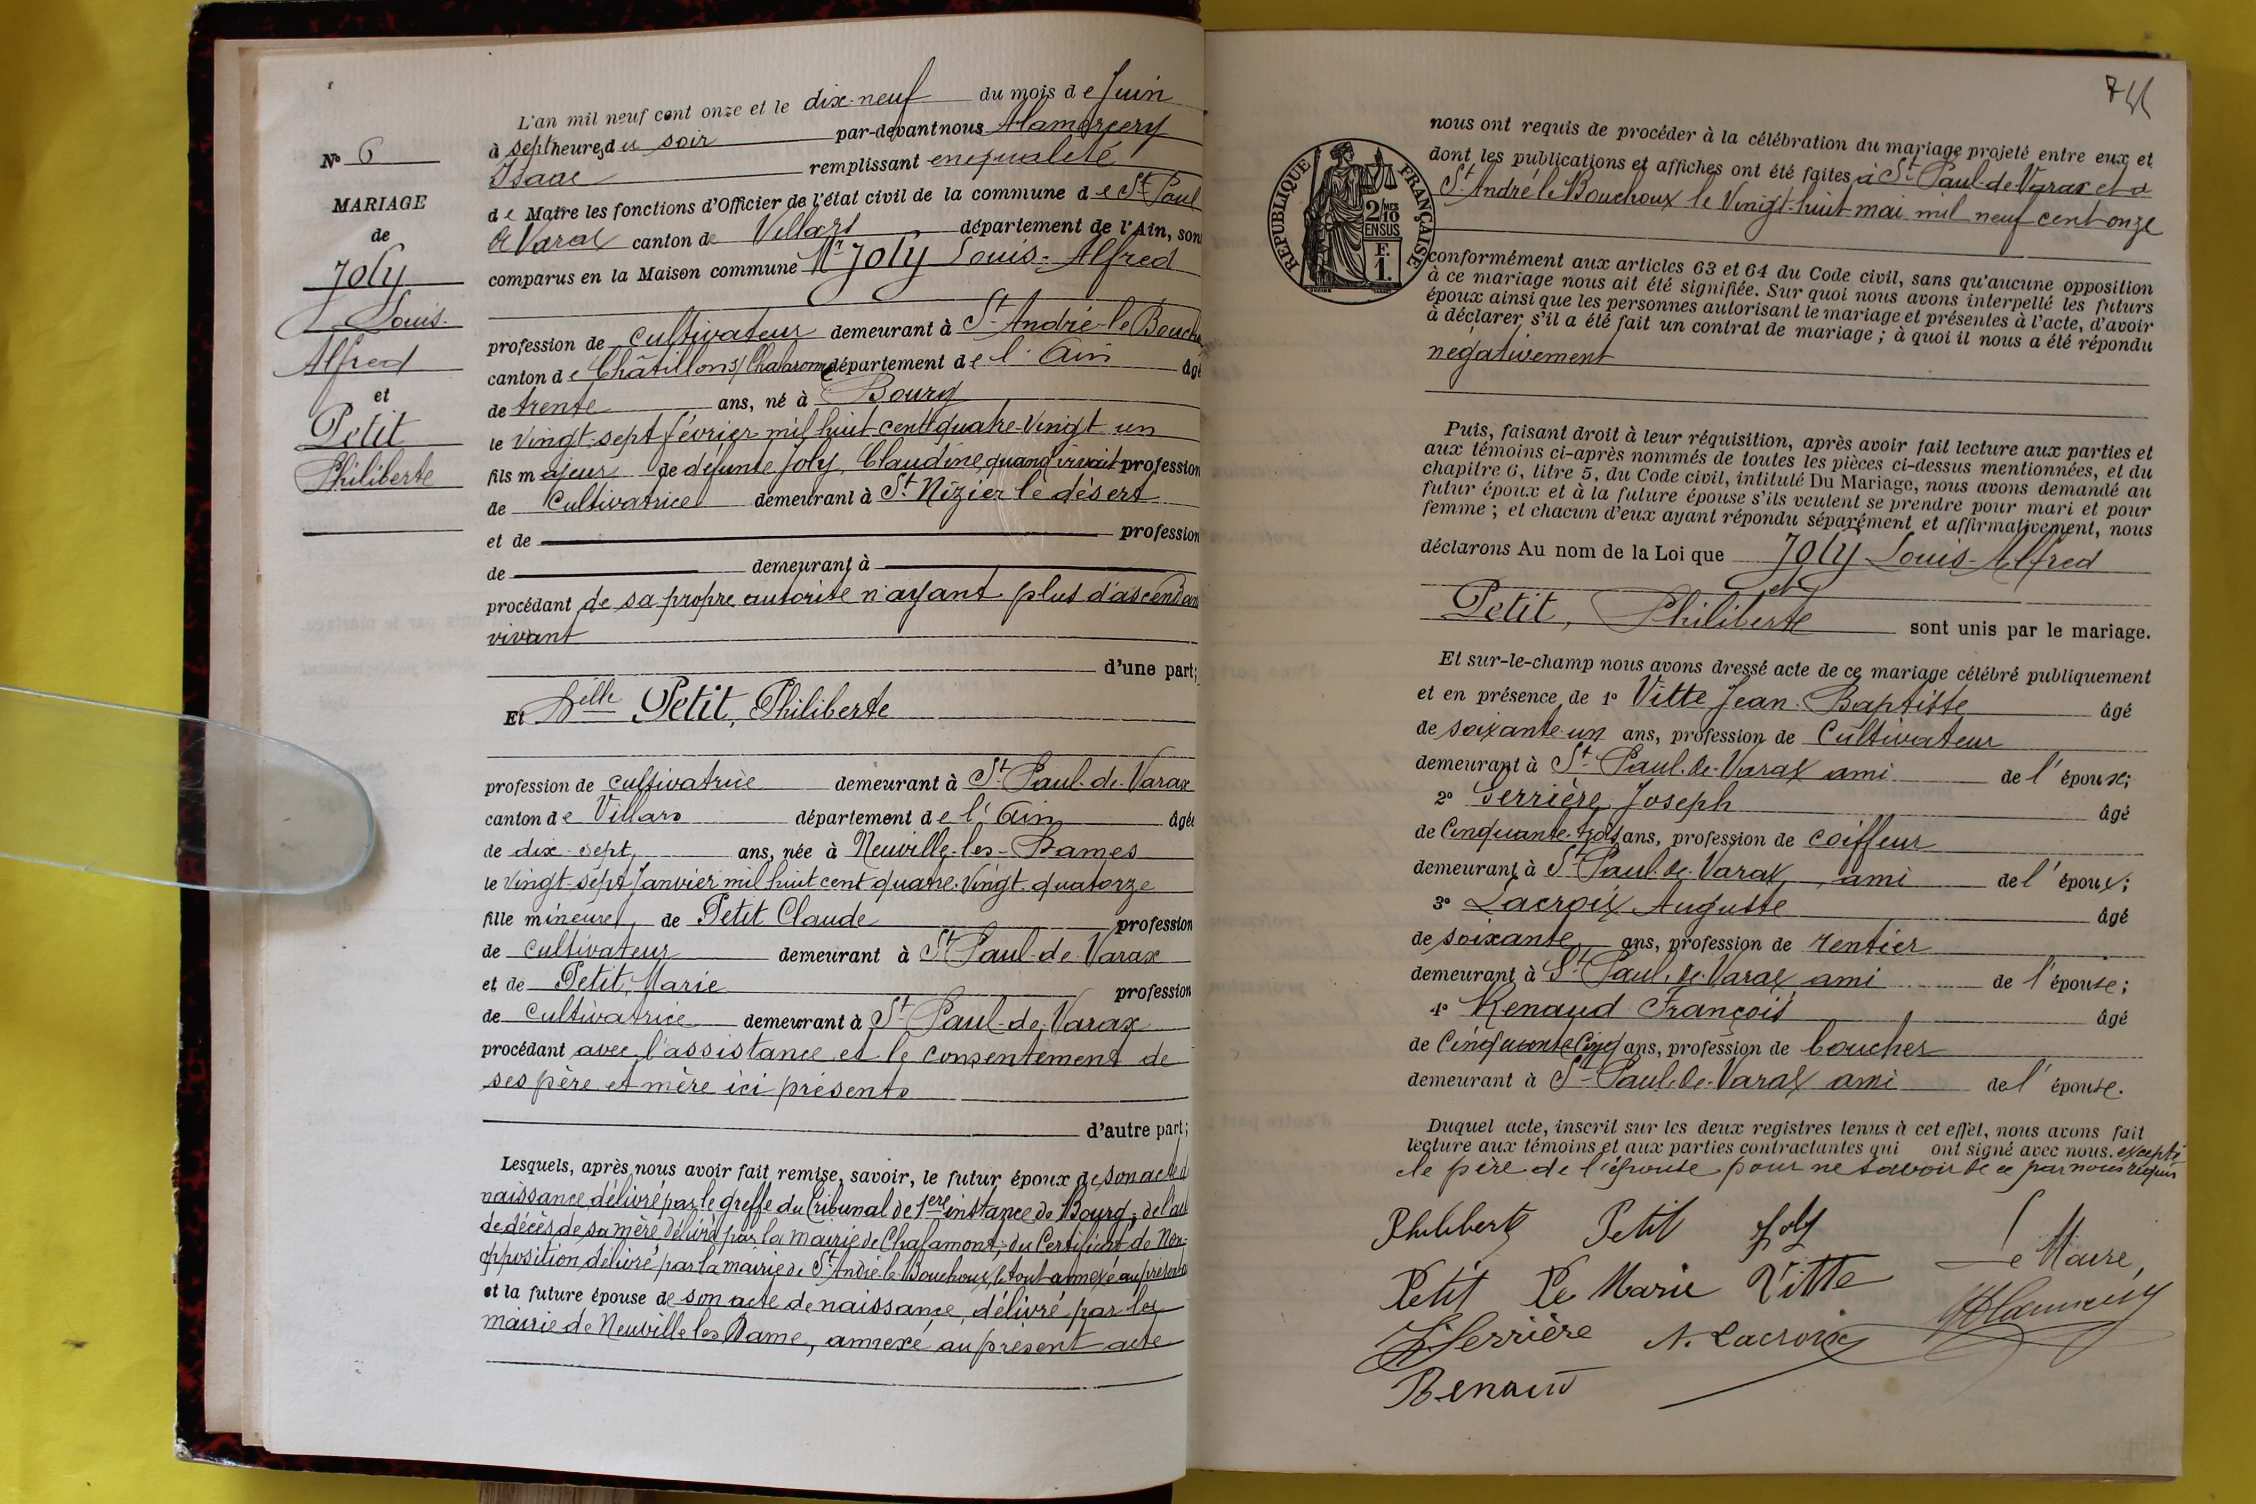 N° 6
MARIAGE
de
Joly
Louis-
Alfred
et
Petit
Philiberte
L'an mil neuf cent onze et le dix-neuf du mois de Juin
à sept heures du soir par-devant nous Alamercery
Isaac remplissant en qualité
de Maire les fonctions d'Officier de l'état civil de la commune de St Paul
de Varax canton de Villars département de l'Ain, sont
comparus en la Maison commune Mr Joly Louis-Alfred
profession de cultivateur demeurant à St-André-le-Bouchoux
canton de Châtillon s/ Chalaronne département de l'Ain âgé
de trente ans, né à Bourg
le vingt-sept février mil huit cent quatre-vingt un
fils majeur de défunte Joly Claudine quand vivait profession
de cultivatrice demeurant à St Nizier le désert
et de profession
de demeurant à
procédant de sa propre autorité n'ayant plus d'ascendant
vivant
d'une part;
Et Delle Petit, Philiberte
profession de cultivatrice demeurant à St-Paul-de-Varax
canton de Villars département de l'Ain âgée
de dix-sept ans, née à Neuville-les-Dames
le vingt-sept Janvier mil huit cent quatre-vingt-quatorze
fille mineure de Petit Claude profession
de cultivateur demeurant à St Paul-de-Varax
et de Petit, Marie profession
de cultivatrice demeurant à St-Paul-de-Varax
procédant avec l'assistance et le consentement de
ses père et mère ici présents
d'autre part;
Lesquels, après nous avoir fait remise, savoir, le futur époux de son acte de
naissance délivré par le greffe du Tribunal de 1ere instance de Bourg; de l'acte
de décès de sa mère délivré par la mairie de Chalamont; du Certificat de Non-
opposition délivré par la mairie de St André-le-Bouchoux, le tout annexé au présent
et la future épouse de son acte de naissance, délivré par la
mairie de Neuville les Dame, annexé au présent acte
REPUBLIQUE FRANÇAISE
2/MES
10
EN SUS
F.
1.
nous ont requis de procéder à la célébration du mariage projeté entre eux et
dont les publications et affiches ont été faites à St-Paul-de-Varax et à
St-André-le-Bouchoux le Vingt-huit mai mil neuf cent onze
conformément aux articles 63 et 64 du Code civil, sans qu'aucune opposition
à ce mariage nous ait été signifiée. Sur quoi nous avons interpellé les futurs
époux ainsi que les personnes autorisant le mariage et présentes à l'acte, d'avoir
à déclarer s'il a été fait un contrat de mariage ; à quoi il nous a été répondu
négativement
Puis, faisant droit à leur réquisition, après avoir fait lecture aux parties et
aux témoins ci-après nommés de toutes les pièces ci-dessus mentionnées, et du
chapitre 6, titre 5, du Code civil, intitulé Du Mariage, nous avons demandé au
futur époux et à la future épouse s'ils veulent se prendre pour mari et pour
femme ; et chacun d'eux ayant répondu séparément et affirmativement, nous
déclarons Au nom de la Loi que Joly Louis-Alfred
et
Petit, Philiberte sont unis par le mariage.
Et sur-le-champ nous avons dressé acte de ce mariage célébré publiquement
et en présence de 1° Vitte Jean-Baptiste âgé
de soixante-un ans, profession de Cultivateur
demeurant à St-Paul-de-Varax ami de l'épouse;
2° Serrière Joseph âgé
de Cinquante-trois ans, profession de coiffeur
demeurant à St Paul-de-Varax, ami de l'époux;
3° Lacroix Auguste âgé
de soixante ans, profession de rentier
demeurant à St-Paul-de-Varax, ami de l'épouse;
4° Renaud François âgé
de Cinquante Cinq ans, profession de boucher
demeurant à St-Paul-de-Varax ami de l'épouse.
Duquel acte, inscrit sur les deux registres tenus à cet effet, nous avons fait
lecture aux témoins et aux parties contractantes qui ont signé avec nous. excepté
le père de l'épouse pour ne savoir de ce par nous requis
Philiberte Petit Joly
Petit Marie Vitte
Le Maire,
Serrière A. Lacroix
Renaud